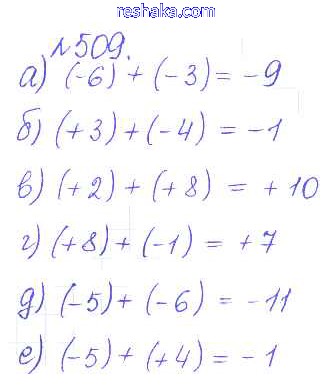 reshaka.com
№509.
а) (-6) + (-3) = -9
б) (+3) + (-4) = -1
в) (+2) + (+8) = +10
г) (+8) + (-1) = +7
д) (-5) + (-6) = -11
е) (-5) + (+4) = -1